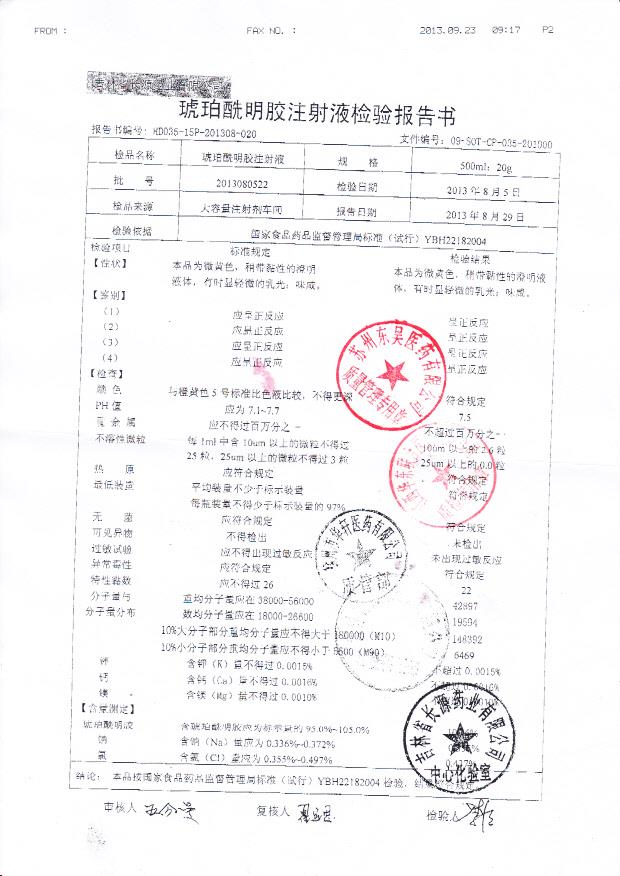 FROM : FAX NO. : 2013.09.23 09:17 P2
琥珀酰明胶注射液检验报告书
报告书编号: MD035-15P-201308-020 文件编号: 09-SOT-CP-035-201000
检品名称 琥珀酰明胶注射液 规 格 500ml: 20g
批 号 2013080522 检验日期 2013 年 8 月 5 日
检品来源 大容量注射剂车间 报告日期 2013 年 8 月 29 日
检验依据 国家食品药品监督管理局标准（试行）YBH22182004
检验项目 标准规定 检验结果
【性状】 本品为微黄色, 稍带黏性的澄明 本品为微黄色, 稍带黏性的澄明液
液体, 有时显轻微的乳光; 味咸。 体, 有时显轻微的乳光; 味咸。
【鉴别】
（1） 应呈正反应 呈正反应
（2） 应呈正反应 呈正反应
（3） 应呈正反应 呈正反应
（4） 应呈正反应 呈正反应
【检查】
颜 色 与橙黄色 5 号标准比色液比较, 不得更深 符合规定
PH 值 应为 7.1~7.7 7.5
重 金 属 应不得过百万分之一 不超过百万分之一
不溶性微粒 每 1ml 中含 10um 以上的微粒不得过 10um 以上的 2.6 粒
25 粒, 25um 以上的微粒不得过 3 粒 25um 以上的 0.0 粒
热 原 应符合规定 符合规定
最低装量 平均装量不少于标示装量 符合规定
每瓶装量不得少于标示装量的 97%
无 菌 应符合规定 符合规定
可见异物 不得检出 未检出
过敏试验 应不得出现过敏反应 未出现过敏反应
异常毒性 应符合规定 符合规定
特性黏数 应不得过 26 22
分子量与 重均分子量应在 38000-56000 42897
分子量分布 数均分子量应在 18000-26600 19594
10%大分子部分重均分子量应不得大于 180000（M10） 148392
10%小分子部分重均分子量应不得小于 5500（M90） 6469
钾 含钾（K）量不得过 0.0015% 不超过 0.0015%
钙 含钙（Ca）量不得过 0.0016%
镁 含镁（Mg）量不得过 0.0010%
【含量测定】
琥珀酰明胶 含琥珀酰明胶应为标示量的 95.0%~105.0%
钠 含钠（Na）量应为 0.336%-0.372%
氯 含氯（Cl）量应为 0.355%-0.497%
结论: 本品按国家食品药品监督管理局标准（试行）YBH22182004 检验, 结果符合规定
审核人 复核人 检验人
苏州东吴医药有限公司
质量管理专用章
杭州市华轩医药有限公司
质管部
吉林省长源药业有限公司
中心化验室